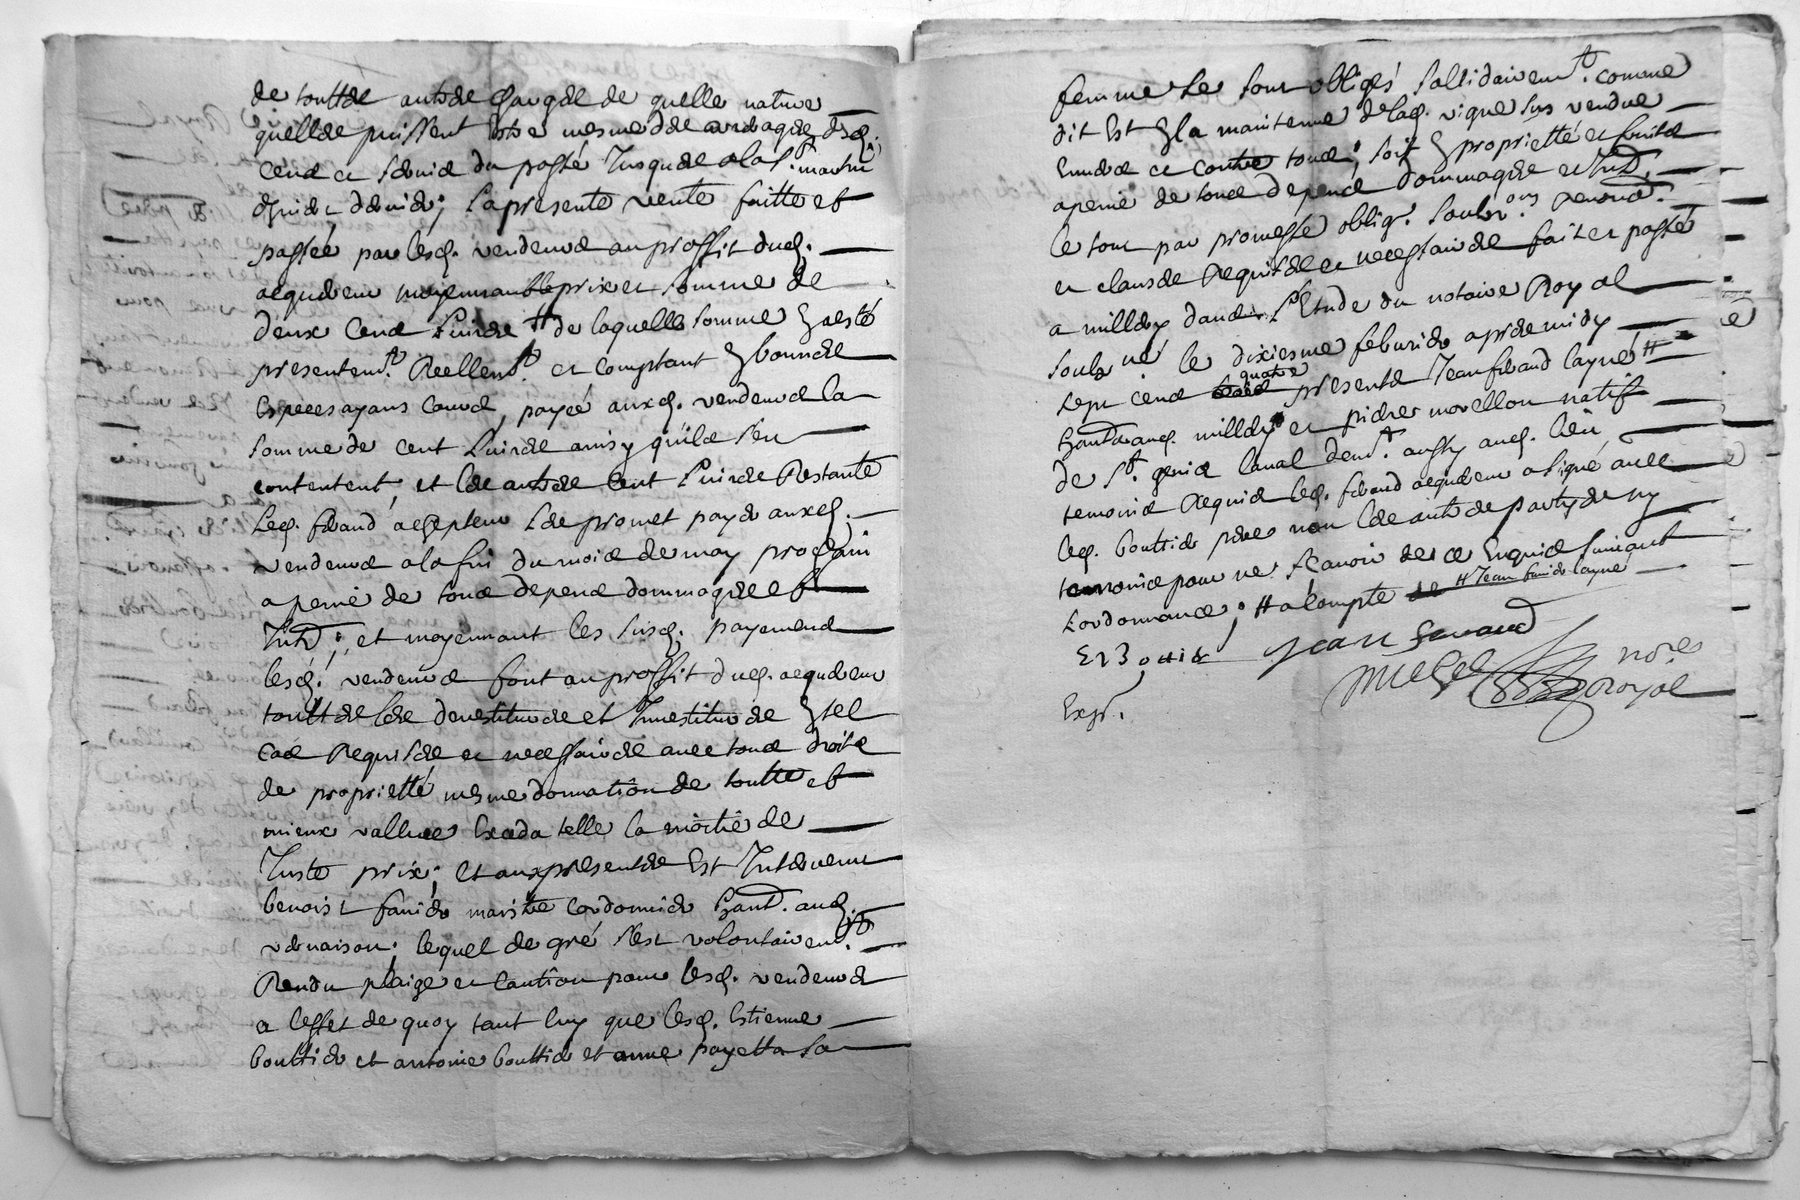 de touttes autres charges de quelle nature
quelles puissent estre mesmes des arrerages desd.
cens et servis du passé jusques a la St. martin
dhivert dernier; la presente vente faitte et
passée par lesd. vendeurs au proffit dud.
acquereur moyennant le prix et somme de
deux cent livres de laquelle somme en a esté
presentemt. reellemt. et comptant en bonnes
especes ayans cours, payée auxd. vendeurs la
somme de cent livres ainsy quils sen
contentent, et les autres cent livres restante
led. feraud accepteur les promet payer auxd.
vendeurs a la fin du mois de may prochain
a peine de tous depens dommages et
Intd.; et moyennant les susd. payemens
lesd. vendeurs font au proffit dud. acquereur
touttes les devestitures et Investitures en tel
cas requises et necessaires avec tous droits
de proprietté mesme donnation de toutte et
mieux vallue Exceda telle la moitié de
Juste prix; et aux presentes Est Intervenu
benoist fanier maistre cordonnier habt. aud.
vernaison; lequel de gré s'est volontairemt.
Rendu plaige et caution pour lesd. vendeurs
a l'effet de quoy tant luy que lesd. Estienne
bouttier et antoine bouttier et anne payetta sa
femme se sont obligés sollidairemt. comme
dit Est en la maintenue de lad. vigne sus vendue
Envers et contre tous; soit en proprietté et fruits
a peine de tous depens dommages et Intd.
le tout par promesse oblig. soubz.ons renond.
et clauses requises et necessaires fait et passé
a millery dans l'Etude du notaire Royal
soubz né le dixiesme febvrier apres midy
sept cens quatre presents Jean feraud layné #
habt. aud. millery et pierre morellon natif
de St. genis laval demt. aussy aud. lieu
temoins requis led. feraud acquereur a signé avec
led. bouttier pere non les autres partyes ny
temoins pour ne sçavoir de ce Enquis suivant
Lordonnance; # a compte # Jean fanier layné
E B outier Jean Feraud
Michel nore. Royal
Expé.